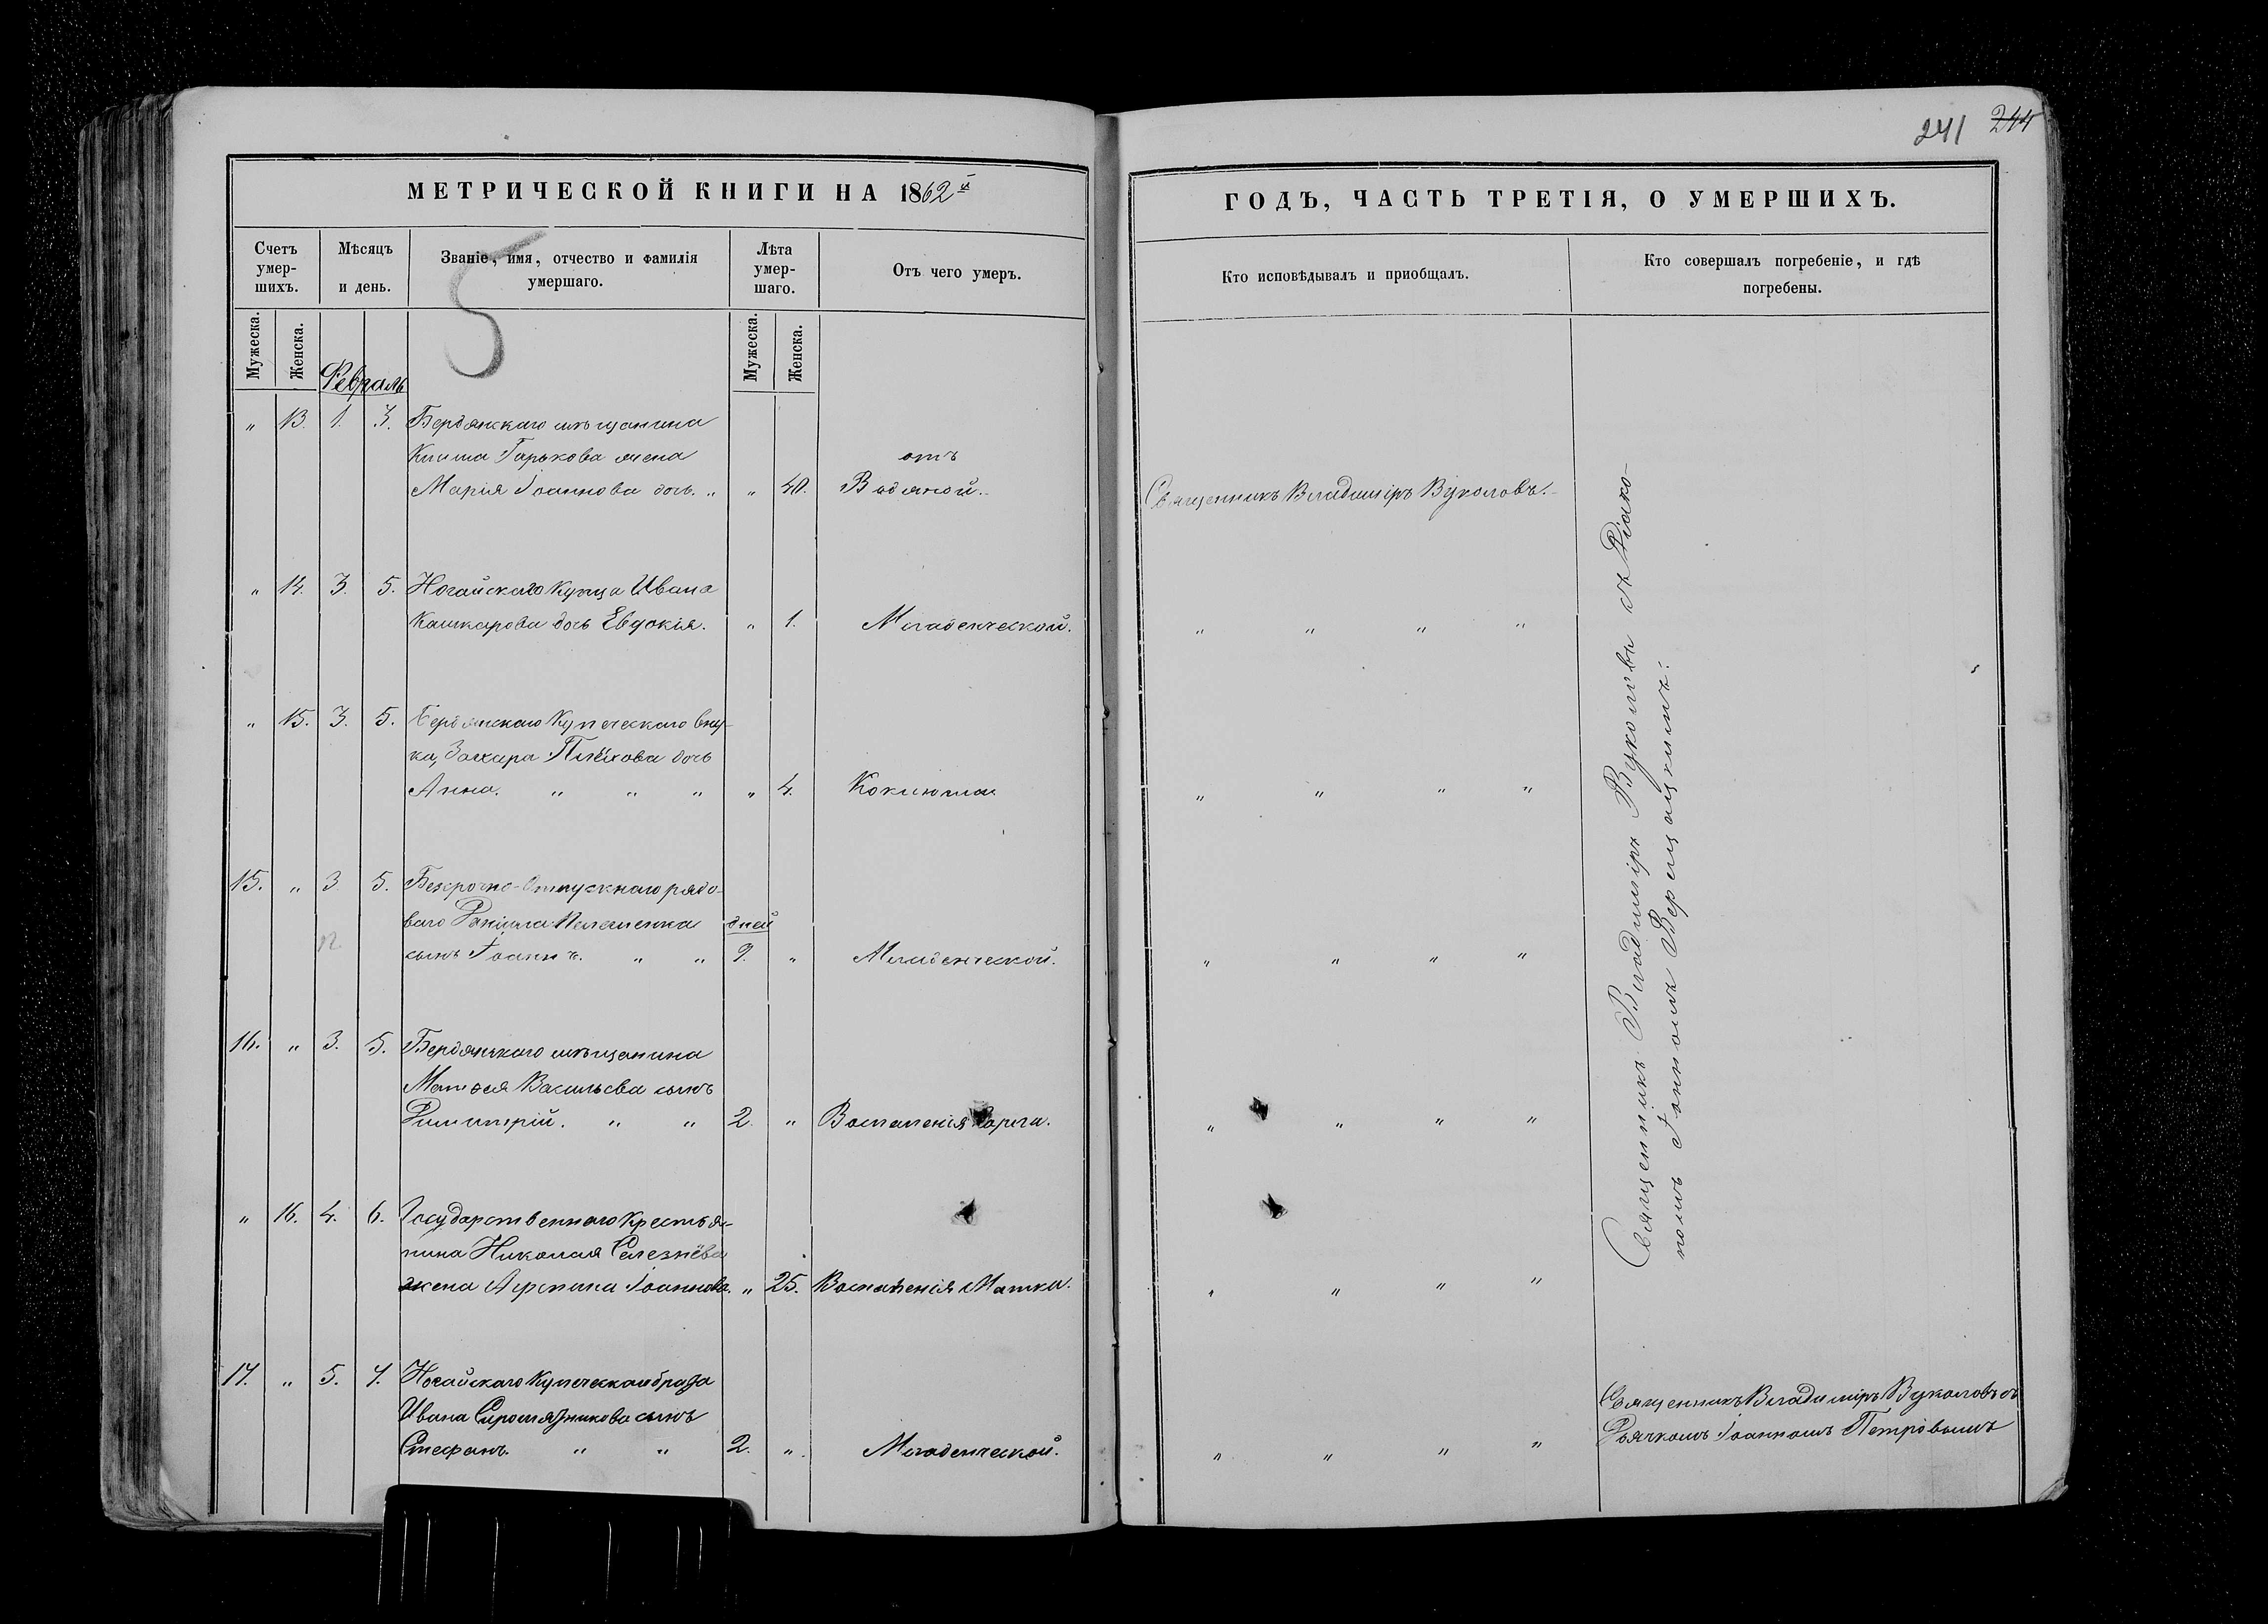 241 244
МЕТРИЧЕСКОЙ КНИГИ НА 1862й
ГОДЪ, ЧАСТЬ ТРЕТІЯ, О УМЕРШИХЪ.
Счетъ умер-шихъ.
Мѣсяцъ и день.
Званіе, имя, отчество и фамилія умершаго.
Лѣта умер-шаго.
Отъ чего умеръ.
Кто исповѣдывалъ и пріобщалъ.
Кто совершалъ погребеніе, и гдѣ погребены.
Мужеска. Женска. Мужеска. Женска.
Февраль
„ 13. 1. 3. Бердянскаго мѣщанина
Горькова жена отъ
Марія Іоаннова дочь. „ „ 40. Водяной. Священникъ Владиміръ Вуколовъ.
„ 14. 3. 5. Ногайскаго Купца Ивана
Кашкарова дочь Евдокія. „ 1. Младенческой. „ „ „ „
„ 15. 3. 5. Бердянскаго Купеческаго вну-
ка, Захара Плѣхова дочь
Анна. „ „ „ „ 4. Коклюша. „ „ „ „
15. „ 3. 5. Безсрочно-Отпускнаго рядо-
ваго дней
сынъ Іоаннъ. „ „ 9. „ Младенческой. „ „ „ „
16. „ 3. 5. Бердянскаго мѣщанина
Матѳея Васильева сынъ
Димитрій. „ „ 2. „ Воспаленія Горла. „ „ „ „
„ 16. 4. 6. Государственнаго Крестья-
нина Николая Селезнёва
жена Агрпина Іоаннова. „ 25. Воспаленія Матки. „ „ „ „
17. „ 5. 7. Ногайскаго Купеческаго брата
Ивана Сыромятникова сынъ
Стефанъ. „ „ 2. „ Младенческой. „ „ „ „
Священникъ Владиміръ Вуколовъ съ Діако-
номъ Іоанномъ Верещацкимъ.
Священникъ Владиміръ Вуколовъ съ
Дьячкомъ Іоанномъ Петровымъ